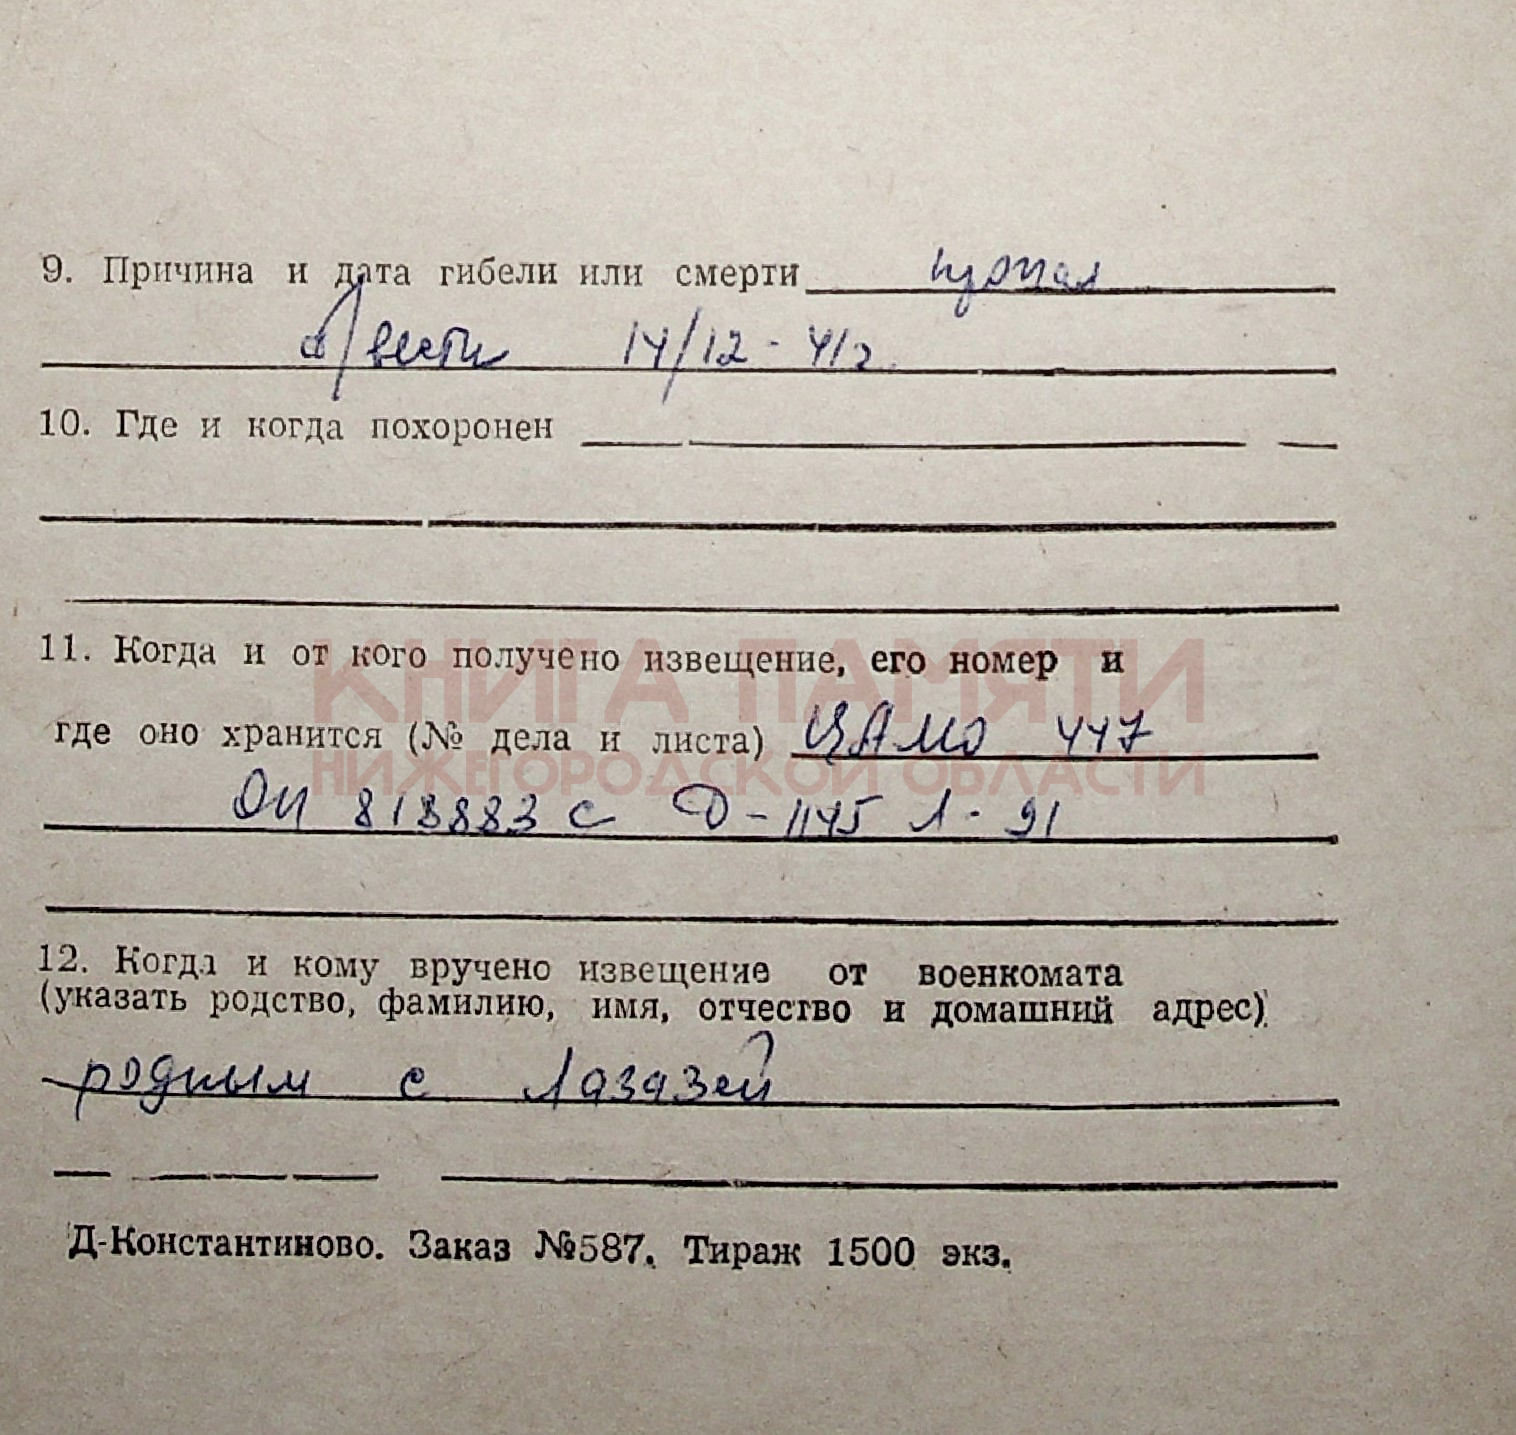 9. Причина и дата гибели или смерти пропал
б/вести 14/12-41г.
10. Где и когда похоронен
11. Когда и от кого получено извещение, его номер и
КНИГА ПАМЯТИ
где оно хранится (№ дела и листа) ЦАМО 447
НИЖЕГОРОДСКОЙ ОБЛАСТИ
ОП 818883с Д-1145 Л-91
12. Когда и кому вручено извещение от военкомата
(указать родство, фамилию, имя, отчество и домашний адрес)
родным с Лазазей
Д-Константиново. Заказ №587. Тираж 1500 экз.